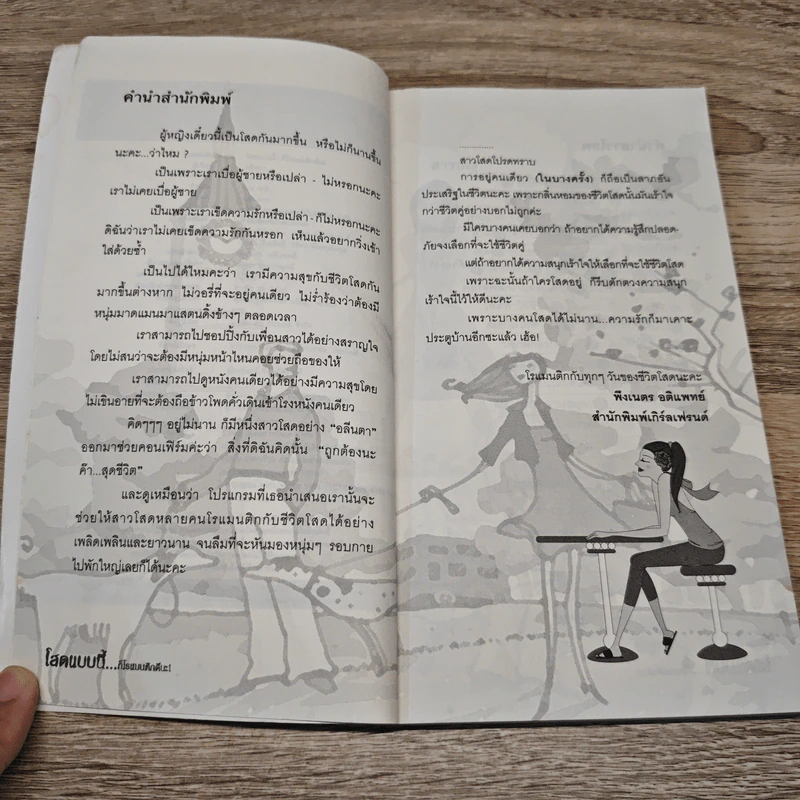 คำนำสำนักพิมพ์
ผู้หญิงเดี๋ยวนี้เป็นโสดกันมากขึ้น หรือไม่ก็นานขึ้น
นะคะ...ว่าไหม ?
เป็นเพราะเราเบื่อผู้ชายหรือเปล่า - ไม่หรอกนะคะ
เราไม่เคยเบื่อผู้ชาย
เป็นเพราะเราเข็ดความรักหรือเปล่า - ก็ไม่หรอกนะคะ
ดิฉันว่าเราไม่เคยเข็ดความรักกันหรอก เห็นแล้วอยากวิ่งเข้า
ใส่ด้วยซ้ำ
เป็นไปได้ไหมคะว่า เรามีความสุขกับชีวิตโสดกัน
มากขึ้นต่างหาก ไม่วอรี่ที่จะอยู่คนเดียว ไม่ร่ำร้องว่าต้องมี
หนุ่มมาดแมนมาแสตนดิ้งข้างๆ ตลอดเวลา
เราสามารถไปชอปปิ้งกับเพื่อนสาวได้อย่างสราญใจ
โดยไม่สนว่าจะต้องมีหนุ่มหน้าไหนคอยช่วยถือของให้
เราสามารถไปดูหนังคนเดียวได้อย่างมีความสุขโดย
ไม่เขินอายที่จะต้องถือข้าวโพดคั่วเดินเข้าโรงหนังคนเดียว
คิดๆๆๆ อยู่ไม่นาน ก็มีหนึ่งสาวโสดอย่าง “อลีนตา”
ออกมาช่วยคอนเฟิร์มค่ะว่า สิ่งที่ดิฉันคิดนั้น “ถูกต้องนะ
ค๊า...สุดชีวิต”
และดูเหมือนว่า โปรแกรมที่เธอนำเสนอเรานั้นจะ
ช่วยให้สาวโสดหลายคนโรแมนติกกับชีวิตโสดได้อย่าง
เพลิดเพลินและยาวนาน จนลืมที่จะหันมองหนุ่มๆ รอบกาย
ไปพักใหญ่เลยก็ได้นะคะ
โสดแบบนี้...ก็โรแมนติกดีนะ!
..............
สาวโสดโปรดทราบ
การอยู่คนเดียว (ในบางครั้ง) ก็ถือเป็นลาภอัน
ประเสริฐในชีวิตนะคะ เพราะกลิ่นหอมของชีวิตโสดนั้นมันเร้าใจ
กว่าชีวิตคู่อย่างบอกไม่ถูกค่ะ
มีใครบางคนเคยบอกว่า ถ้าอยากได้ความรู้สึกปลอด-
ภัยจงเลือกที่จะใช้ชีวิตคู่
แต่ถ้าอยากได้ความสนุกเร้าใจให้เลือกที่จะใช้ชีวิตโสด
เพราะฉะนั้นถ้าใครโสดอยู่ ก็รีบตักตวงความสนุก
เร้าใจนี้ไว้ให้ดีนะคะ
เพราะบางคนโสดได้ไม่นาน...ความรักก็มาเคาะ
ประตูบ้านอีกซะแล้ว เฮ้อ!
โรแมนติกกับทุกๆ วันของชีวิตโสดนะคะ
พึงเนตร อติแพทย์
สำนักพิมพ์เกิร์ลเฟรนด์